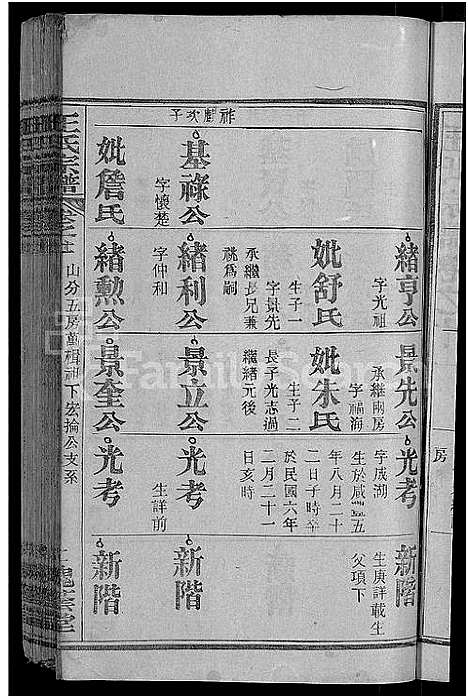 緒亨公
字光祖
妣舒氏
生子一
字景先
承繼長兄兼
祧爲嗣
景先公
承繼兩房
字福海
妣朱氏
生子二
長子光志過
繼緒元後
光考
字咸湖
生於咸豐五
年八月二十
二日子時卒
於民國六年
二月二十一
日亥時
新階
生庚詳載生
父項下
祚麒次子
基祿公
字懷楚
緒利公
字仲和
景立公
光考
生詳前
新階
妣詹氏
緒勲公
景奎公
光考
新階
王氏宗譜
山分五房萬楫祚下宏掄公支系
三槐堂
房
FamilySearch